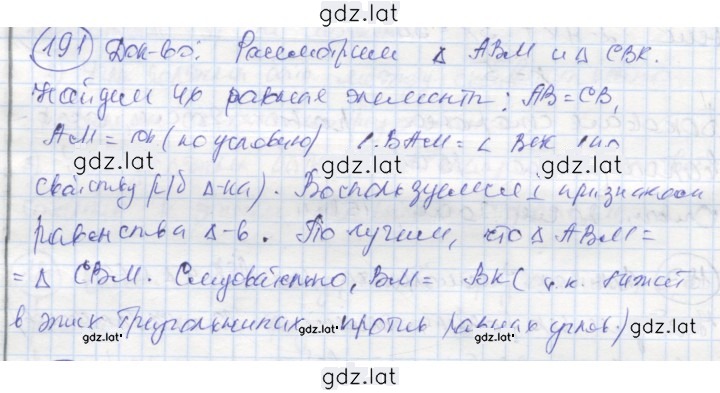 gdz.lat
191 Док-во: Рассмотрим Δ АВМ и Δ СВК.
Найдем их равные элементы: АВ=СВ,
АМ= (по условию) ∠ВАМ=∠
gdz.lat gdz.lat gdz.lat
свойству р/б Δ-ка). Воспользуемся 1 признаком
равенства Δ-в. Получим, что Δ АВМ=
= Δ СВМ. Следовательно, ВМ= ВК( т.к. лежат
в этих треугольниках против равных углов.)
gdz.lat gdz.lat gdz.lat
gdz.lat